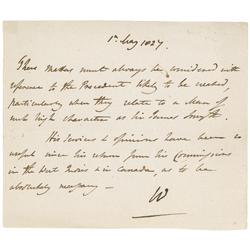 1st May 1827.
These matters must always be considered with
reference to the Precedent likely to be created,
particularly when they relate to a Man of
such high character as Sir James Smyth.
His services & opinions have been so
useful since his return from his Commissions
in the West Indies & in Canada, as to be
absolutely necessary —
W